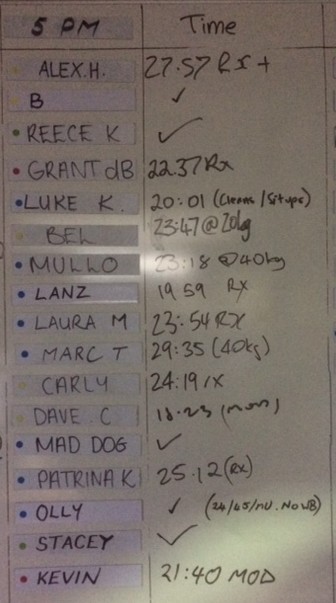 5 PM Time
ALEX.H. 27.57 RX +
B ✓
REECE K ✓
GRANT dB 22.37 Rx
LUKE K. 20:01 (Cleans/Situps)
BEL 23:47 @ 20kg
MULLO 23:18 @ 40kg
LANZ 19 59 RX
LAURA M 23:54 RX
MARC T 29:35 (40kg)
CARLY 24:19 rx
DAVE C
MAD DOG ✓
PATRINA K 25.12 (Rx)
OLLY ✓
STACEY ✓
KEVIN 21:40 MOD